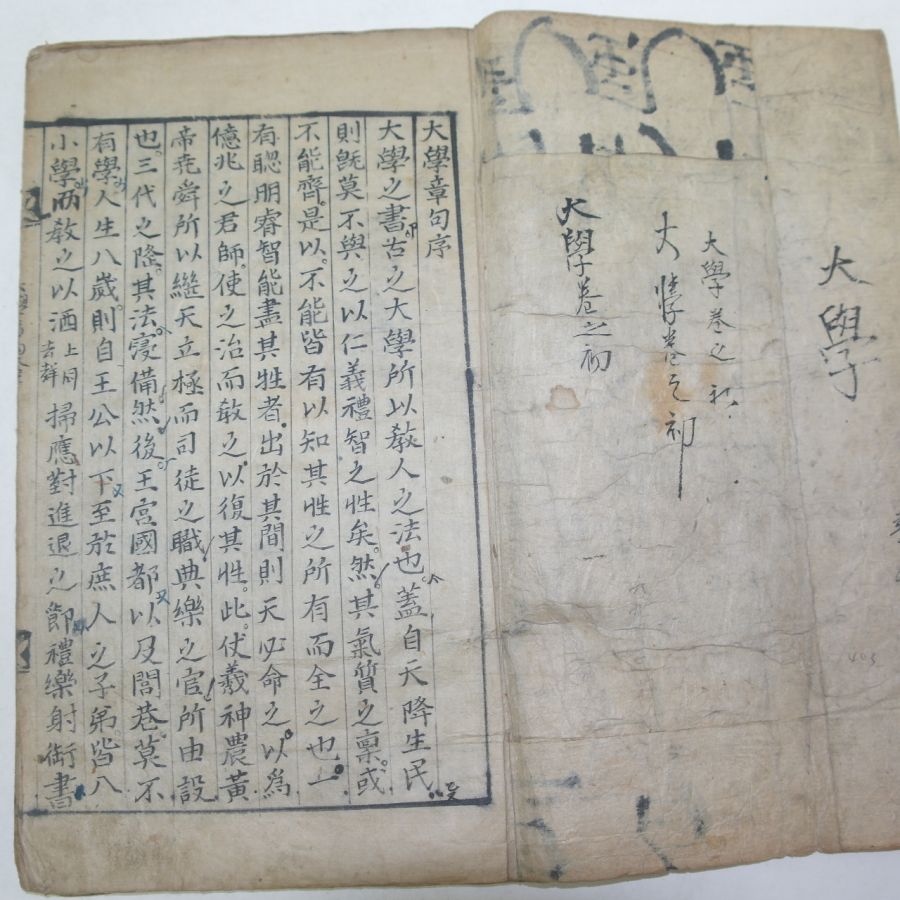 大學
大學卷之初
大學卷之初
大學卷之初
大學章句序
大學之書古之大學所以敎人之法也蓋自天降生民
則旣莫不與之以仁義禮智之性矣然其氣質之稟或
不能齊是以不能皆有以知其性之所有而全之也一
有聰明睿智能盡其性者出於其間則天必命之以爲
億兆之君師使之治而敎之以復其性此伏羲神農黃
帝堯舜所以繼天立極而司徒之職典樂之官所由設
也三代之隆其法寖備然後王宮國都以及閭巷莫不
有學人生八歲則自王公以下至於庶人之子弟皆八
小學而敎之以洒上同去聲掃應對進退之節禮樂射御書